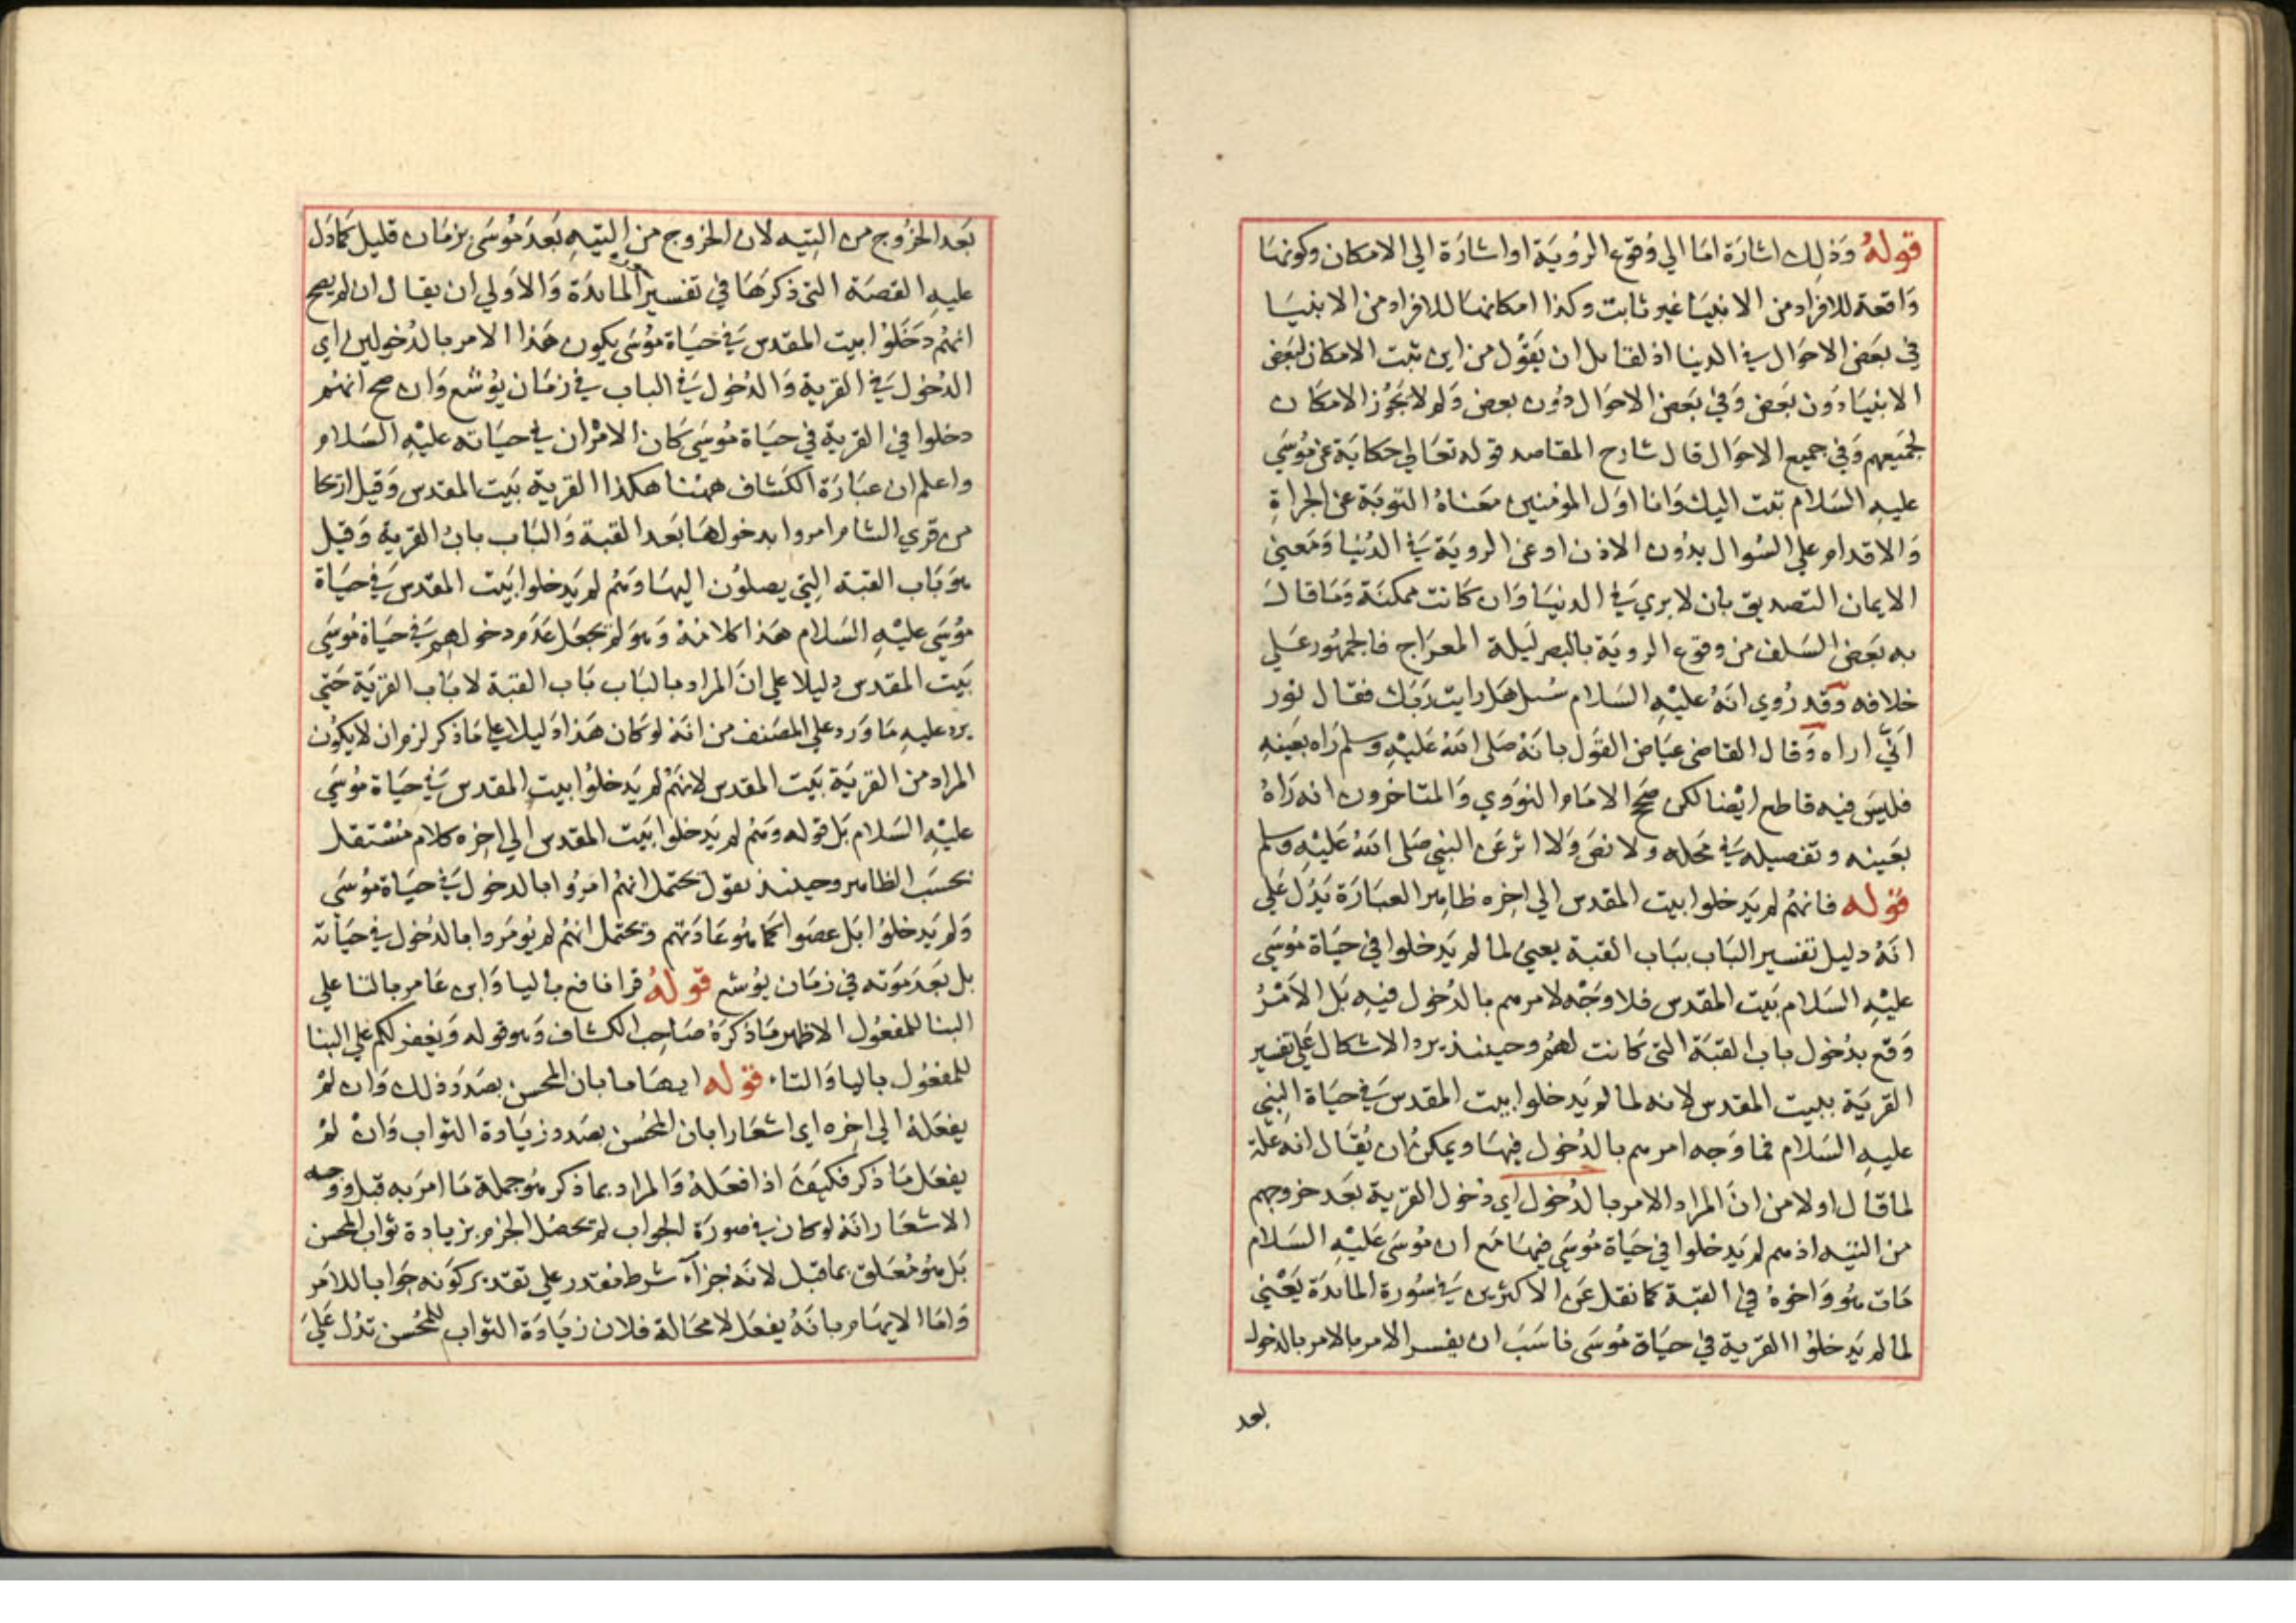 قوله وذلك اشارة اما الي وقوع الروية او اشارة الي الامكان وكونها
واقعة للافراد من الانبيا غير ثابت وكذا امكانها للافراد من الانبيا
في بعض الاحوال في الدنيا اذ لقايل ان يقول من اين ثبت الامكان لبعض
الانبيا دون بعض وفي بعض الاحوال دون بعض ولم لا يجوز الامكان
لجميعهم وفي جميع الاحوال قال شارح المقاصد قوله تعالي حكاية عن موسي
عليه السلام تبت اليك وانا اول المؤمنين معناه التوبة عن الجراة
والاقدام علي السوال بدون الاذن او عن الروية في الدنيا ومعني
الايمان التصديق بان لا يري في الدنيا وان كانت ممكنة وما قال
به بعض السلف من وقوع الروية بالبصر ليلة المعراج فالجمهور علي
خلافه وقد روي انه عليه السلام سيل هل رايت ربك فقال نور
انّي اراه وقال القاضي عياض القول بانه صلى الله عليه وسلم راه بعينه
فليس فيه قاطع ايضا لكن صح الامام النووي والمتاخرون انه راه
بعينه وتفصيله في محله ولا نص ولا اثر عن النبي صلى الله عليه وسلم
قوله فانهم لم يدخلوا بيت المقدس الي اخره ظاهر العبارة يدل علي
انه دليل تفسير الباب بباب القبة يعني لما لم يدخلوا في حياة موسي
عليه السلام بيت المقدس فلا وجه لامرهم بالدخول فيه بل الامر
وقع بدخول باب القبة التي كانت لهم وحينئذ يرد الاشكال علي تفسير
القرية ببيت المقدس لانه لما لم يدخلوا بيت المقدس في حياة النبي
عليه السلام فما وجه امرهم بالدخول فيها ويمكن ان يقال انه علة
لما قال اولا من ان المراد الامر بالدخول اي دخول القرية بعد خروجهم
من التيه اذ هم لم يدخلوا في حياة موسي فيها مع ان موسي عليه السلام
مات هو واخوه في القبة كما نقل عن الاكثرين في سورة المايدة يعني
لما لم يدخلوا القرية في حياة موسى ناسب ان يفسر الامر بالامر بالدخول
بعد
بعد الخروج من التيه لان الخروج من التيه بعد موسى بزمان قليل كما دل
عليه القصة التي ذكرها في تفسير المايدة والاولي ان يقال ان لم يصح
انهم دخلوا بيت المقدس في حياة موسى يكون هذا الامر بالدخولين اي
الدخول في القرية والدخول في الباب في زمان يوشع وان صح انهم
دخلوا في القرية في حياة موسى كان الامران في حياته عليه السلام
واعلم ان عبارة الكشاف ههنا هكذا القرية بيت المقدس وقيل اريحا
من قري الشام امروا بدخولها بعد القبة والباب باب القرية وقيل
هو باب القبة التي يصلون اليها وهم لم يدخلوا بيت المقدس في حياة
موسي عليه السلام هذا كلامه وهو لم يجعل عدم دخولهم في حياة موسي
بيت المقدس دليلا علي ان المراد بالباب باب القبة لا باب القرية حتي
يرد عليه ما ورد علي المصنف من انه لو كان هذا دليلا علي ما ذكر لزم ان لا يكون
المراد من القرية بيت المقدس لانهم لم يدخلوا بيت المقدس في حياة موسي
عليه السلام بل قوله وهم لم يدخلوا بيت المقدس الي اخره كلام مستقل
بحسب الظاهر وحينئذ نقول يحتمل انهم امروا بالدخول في حياة موسى
ولم يدخلوا بل عصوا كما هو عادتهم ويحتمل انهم لم يومروا بالدخول في حياته
بل بعد موته في زمان يوشع قوله قرا نافع باليا وابن عامر بالتا علي
البنا للمفعول الاظهر ما ذكره صاحب الكشاف وهو قوله ويغفر لكم علي البنا
للمفعول باليا والتاء قوله ايهاما بان المحسن بصدد ذلك وان لم
يفعله الي اخره اي اشعارا بان المحسن بصدد زيادة الثواب وان لم
يفعل ما ذكر فكيف اذا فعله والمراد بما ذكر هو جملة ما امر به قبل ووجه
الاشعار انه لو كان في صورة الجواب لم تحصل الجزم بزيادة ثواب المحسن
بل هو معلق بما قبل لانه جزاء شرط مقدر علي تقدير كونه جوابا للامر
واما الايهام بانه يفعل لا محالة فلان زيادة الثواب للمحسن تدل علي